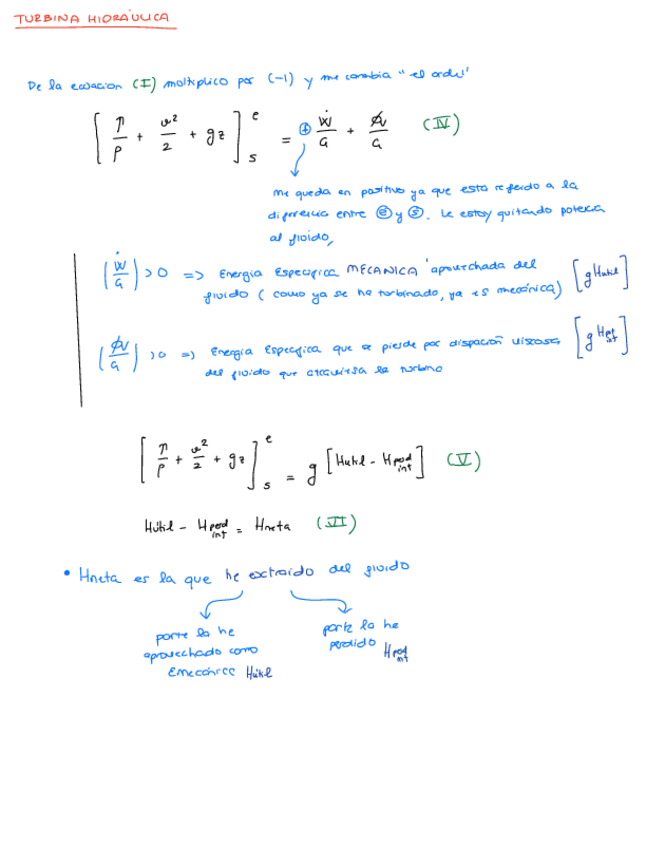 TURBINA HIDRÁULICA
De la ecuacion (I) multiplico por (-1) y me cambia "el orden"
[ P/ρ + v²/2 + gz ]ₛᵉ = ⊕ Ẇ/G + ϕv/G (IV)
Me queda en positivo ya que esta referido a la
diferencia entre ⓔ y ⓢ. Le estoy quitando potencia
al fluido,
(Ẇ/G) > 0 => Energia Especifica MECANICA aprovechada del [g Hutil]
fluido (como ya se ha turbinado, ya es mecánica)
(ϕv/G) > 0 => Energia Especifica que se pierde por dispación viscosa [g Hpd int]
del fluido que atraviesa la turbina
[ P/ρ + v²/2 + gz ]ₛᵉ = g [Hutil - Hperd int] (V)
Hútil - Hperd int = Hneta (VI)
• Hneta es la que he extraido del fluido
parte la he
aprovechado como
Emecánica Hútil
parte lo he
perdido Hperd int